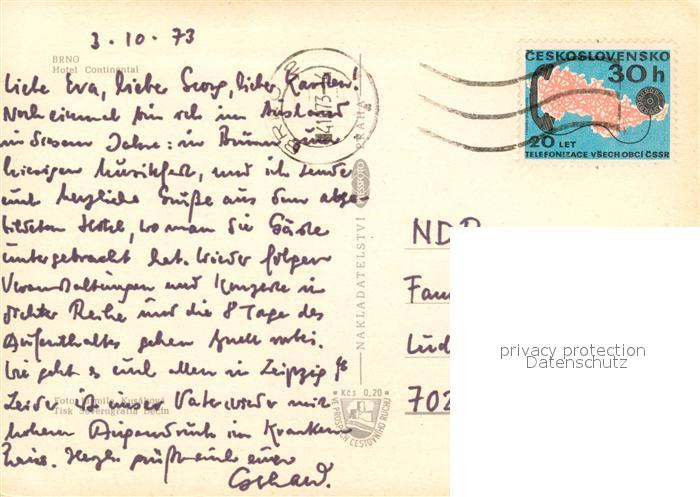 3.10.73
BRNO
Hotel Continental
Liebe Eva, lieber Georg, lieber Karsten!
Noch einmal bin ich im Ausland
in diesem Jahre: in Brünn zum
hiesigen Musikfest, und ich sende
euch herzliche Grüße aus dem abge-
bildeten Hotel, wo man die Gäste
untergebracht hat. Wieder folgen
Veranstaltungen und Konzerte in
dichter Reihe und die 8 Tage des
Aufenthaltes gehen schnell vorbei.
Wie geht es euch allen in Leipzig?
Leider ist unser Vater wieder mit
hohem Augendruck im Kranken
haus. Herzlich grüßt euch euer
Gerhard.
Foto Kamila Kysáková
Tisk Severografia Děčín
NAKLADATELSTVÍ PRESSFOTO PRAHA
Kčs 0,20
VE PROSPĚCH CESTOVNÍHO RUCHU
BRNO
ČESKOSLOVENSKO
30 h
20 LET
TELEFONIZACE VŠECH OBCÍ ČSSR
702
privacy protection
Datenschutz